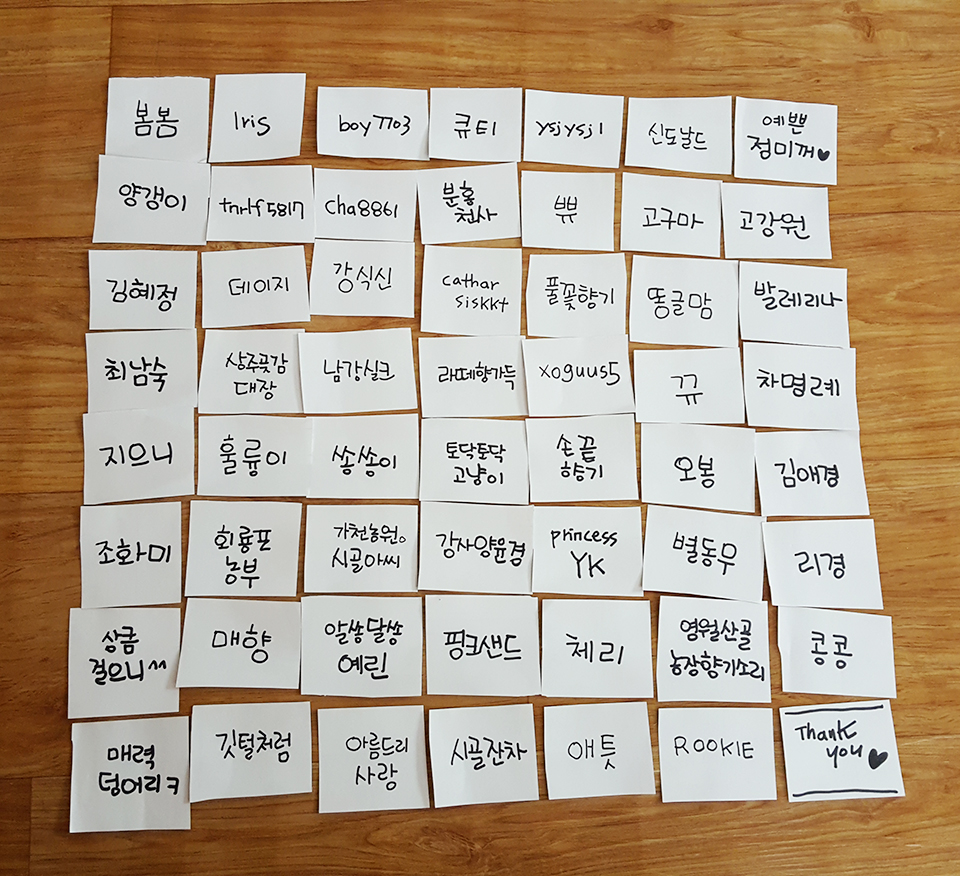 봄봄
Iris
boy7703
큐티
ysjysj1
신도날드
예쁜
정미꺼♥
양갱이
tnrlf5817
cha8861
분홍
천사
쀼
고구마
고강원
김혜정
데이지
강식신
cathar
siskkt
풀꽃향기
똥글맘
발레리나
최남숙
상주곶감
대장
남강실크
라떼향가득
xoguus5
뀨
차명례
지으니
훌륭이
쏭쏭이
토닥토닥
고냥이
손끝
향기
오봉
김애경
조화미
회룡포
농부
가천농원。
시골아씨
강사양윤경
princess
YK
별동무
리경
상큼
걸으니^^
매향
알쏭달쏭
예린
핑크샌드
체리
영월산골
농장향기소리
콩콩
매력
덩어리ㅋ
깃털처럼
아름드리
사랑
시골잔차
애틋
ROOKIE
Thank
you♥